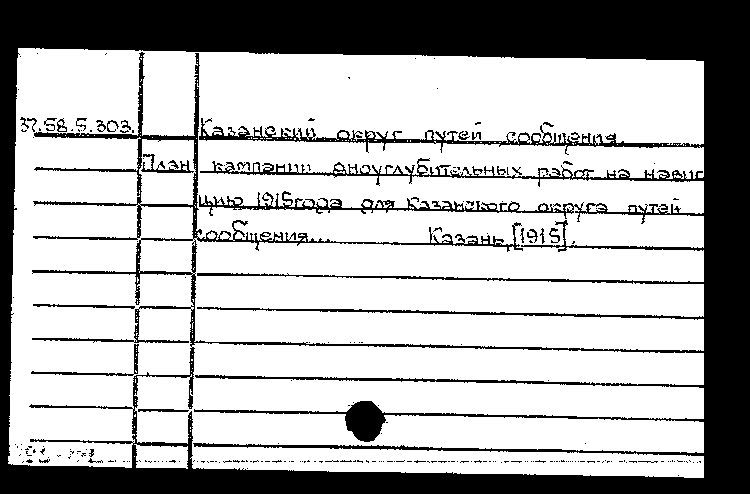 37.58.5.303. Казанский округ путей сообщения.
План кампании дноуглубительных работ на навиг
цию 1915года для Казанского округа путей
сообщения... Казань,[1915].